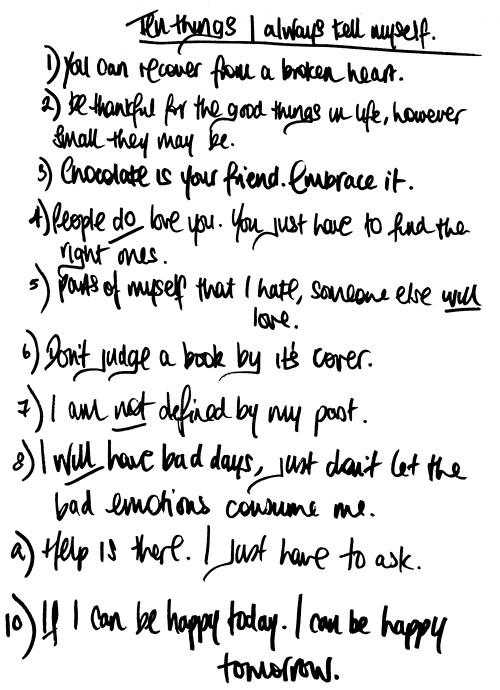 Ten things I always tell myself.
1) You can recover from a broken heart.
2) Be thankful for the good things in life, however
small they may be.
3) Chocolate is your friend. Embrace it.
4) People do love you. You just have to find the
right ones.
5) Parts of myself that I hate, someone else will
love.
6) Don't judge a book by it's cover.
7) I am not defined by my past.
8) I will have bad days, just don't let the
bad emotions consume me.
9) Help is there. I just have to ask.
10) If I can be happy today. I can be happy
tomorrow.